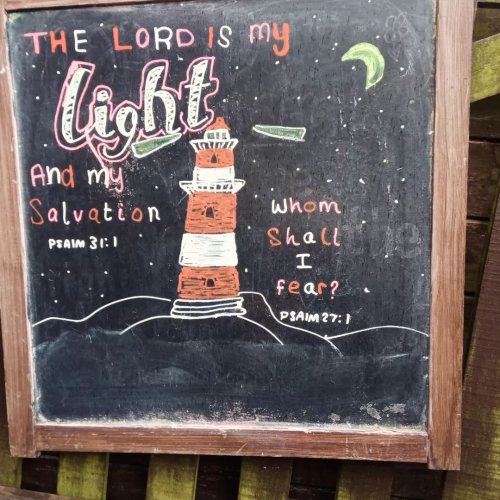 THE LORD IS my
light
And my
Salvation
PSAlM 31:1
Whom
Shall
I
fear?
PSAlM 27:1